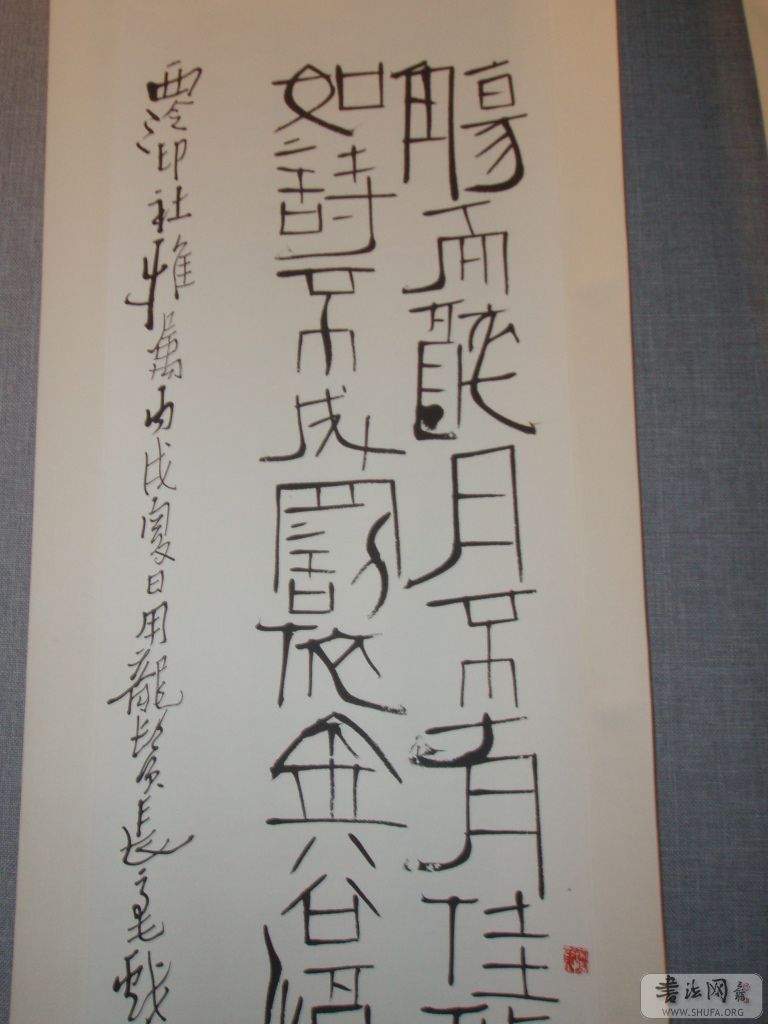 觴而醉月不有佳
如詩不成罰依金谷酒
西泠印社雅属丙戌夏日用龍鬚長毫戲
書法网
WWW.SHUFA.ORG